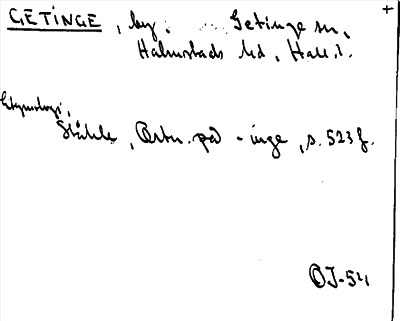 GETINGE, by. Getinge sn, +
Halmstads hd, Hall. l.
Etymologi,
Ståhle, Ortn. på -inge, s. 523 f.
OJ-54